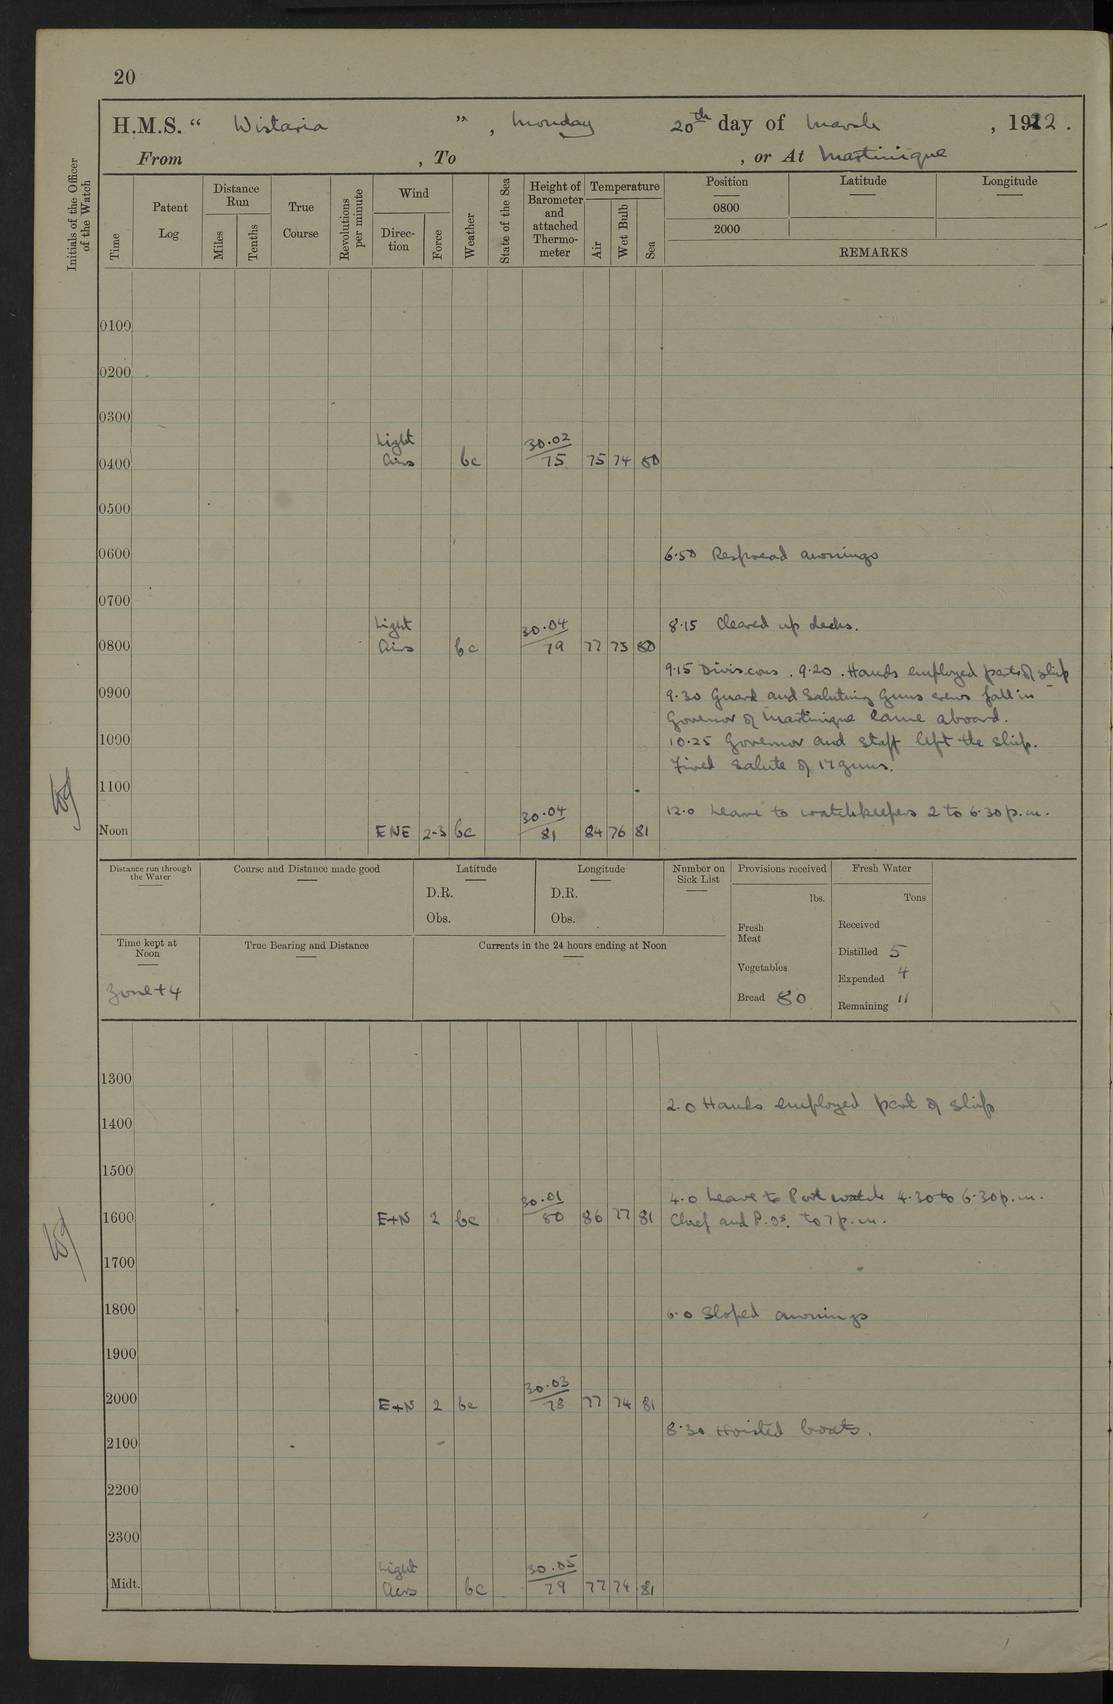 20
H.M.S. “ Wistaria ” , Monday 20th day of March , 1922 .
From , To , or At Martinique
Initials of the Officer of the Watch
Time
Patent Log
Distance Run
Miles
Tenths
True Course
Revolutions per minute
Wind
Direc-tion
Force
Weather
State of the Sea
Height of Barometer and attached Thermo-meter
Temperature
Air
Wet Bulb
Sea
Position
0800
2000
Latitude
Longitude
REMARKS
0100
0200
0300
Light 30.02
0400 Airs bc 75 75 74 80
0500
0600 6.50 Respread awnings
0700
Light 30.04 8.15 Cleared up decks.
0800 Airs bc 79 77 75 80
9.15 Divisions . 9.20 . Hands employed part of ship
0900 9.30 Guard and Saluting Guns crews fall in
Governor of Martinique came aboard.
1000 10.25 Governor and staff left the ship.
Fired Salute of 17 guns.
1100
30.04 12.0 Leave to watchkeepers 2 to 6.30 p.m.
Noon ENE 2-3 bc 81 84 76 81
Distance run through the Water
Course and Distance made good
Latitude
D.R.
Obs.
Longitude
D.R.
Obs.
Number on Sick List
Provisions received
lbs.
Fresh Meat
Vegetables
Bread 80
Fresh Water
Tons
Received
Distilled 5
Expended 4
Remaining 11
Time kept at Noon
Zone +4
True Bearing and Distance
Currents in the 24 hours ending at Noon
1300
2.0 Hands employed part of ship
1400
1500
30.01 4.0 Leave to Port watch 4.30 to 6.30 p.m.
1600 E+N 2 bc 80 86 77 81 Chief and P.Os. to 7 p.m.
1700
1800 6.0 Sloped awnings
1900
30.03
2000 E+N 2 bc 78 77 74 81
8.30 Hoisted boats.
2100
2200
2300
Light 30.05
Midt. Airs bc 79 77 74 81